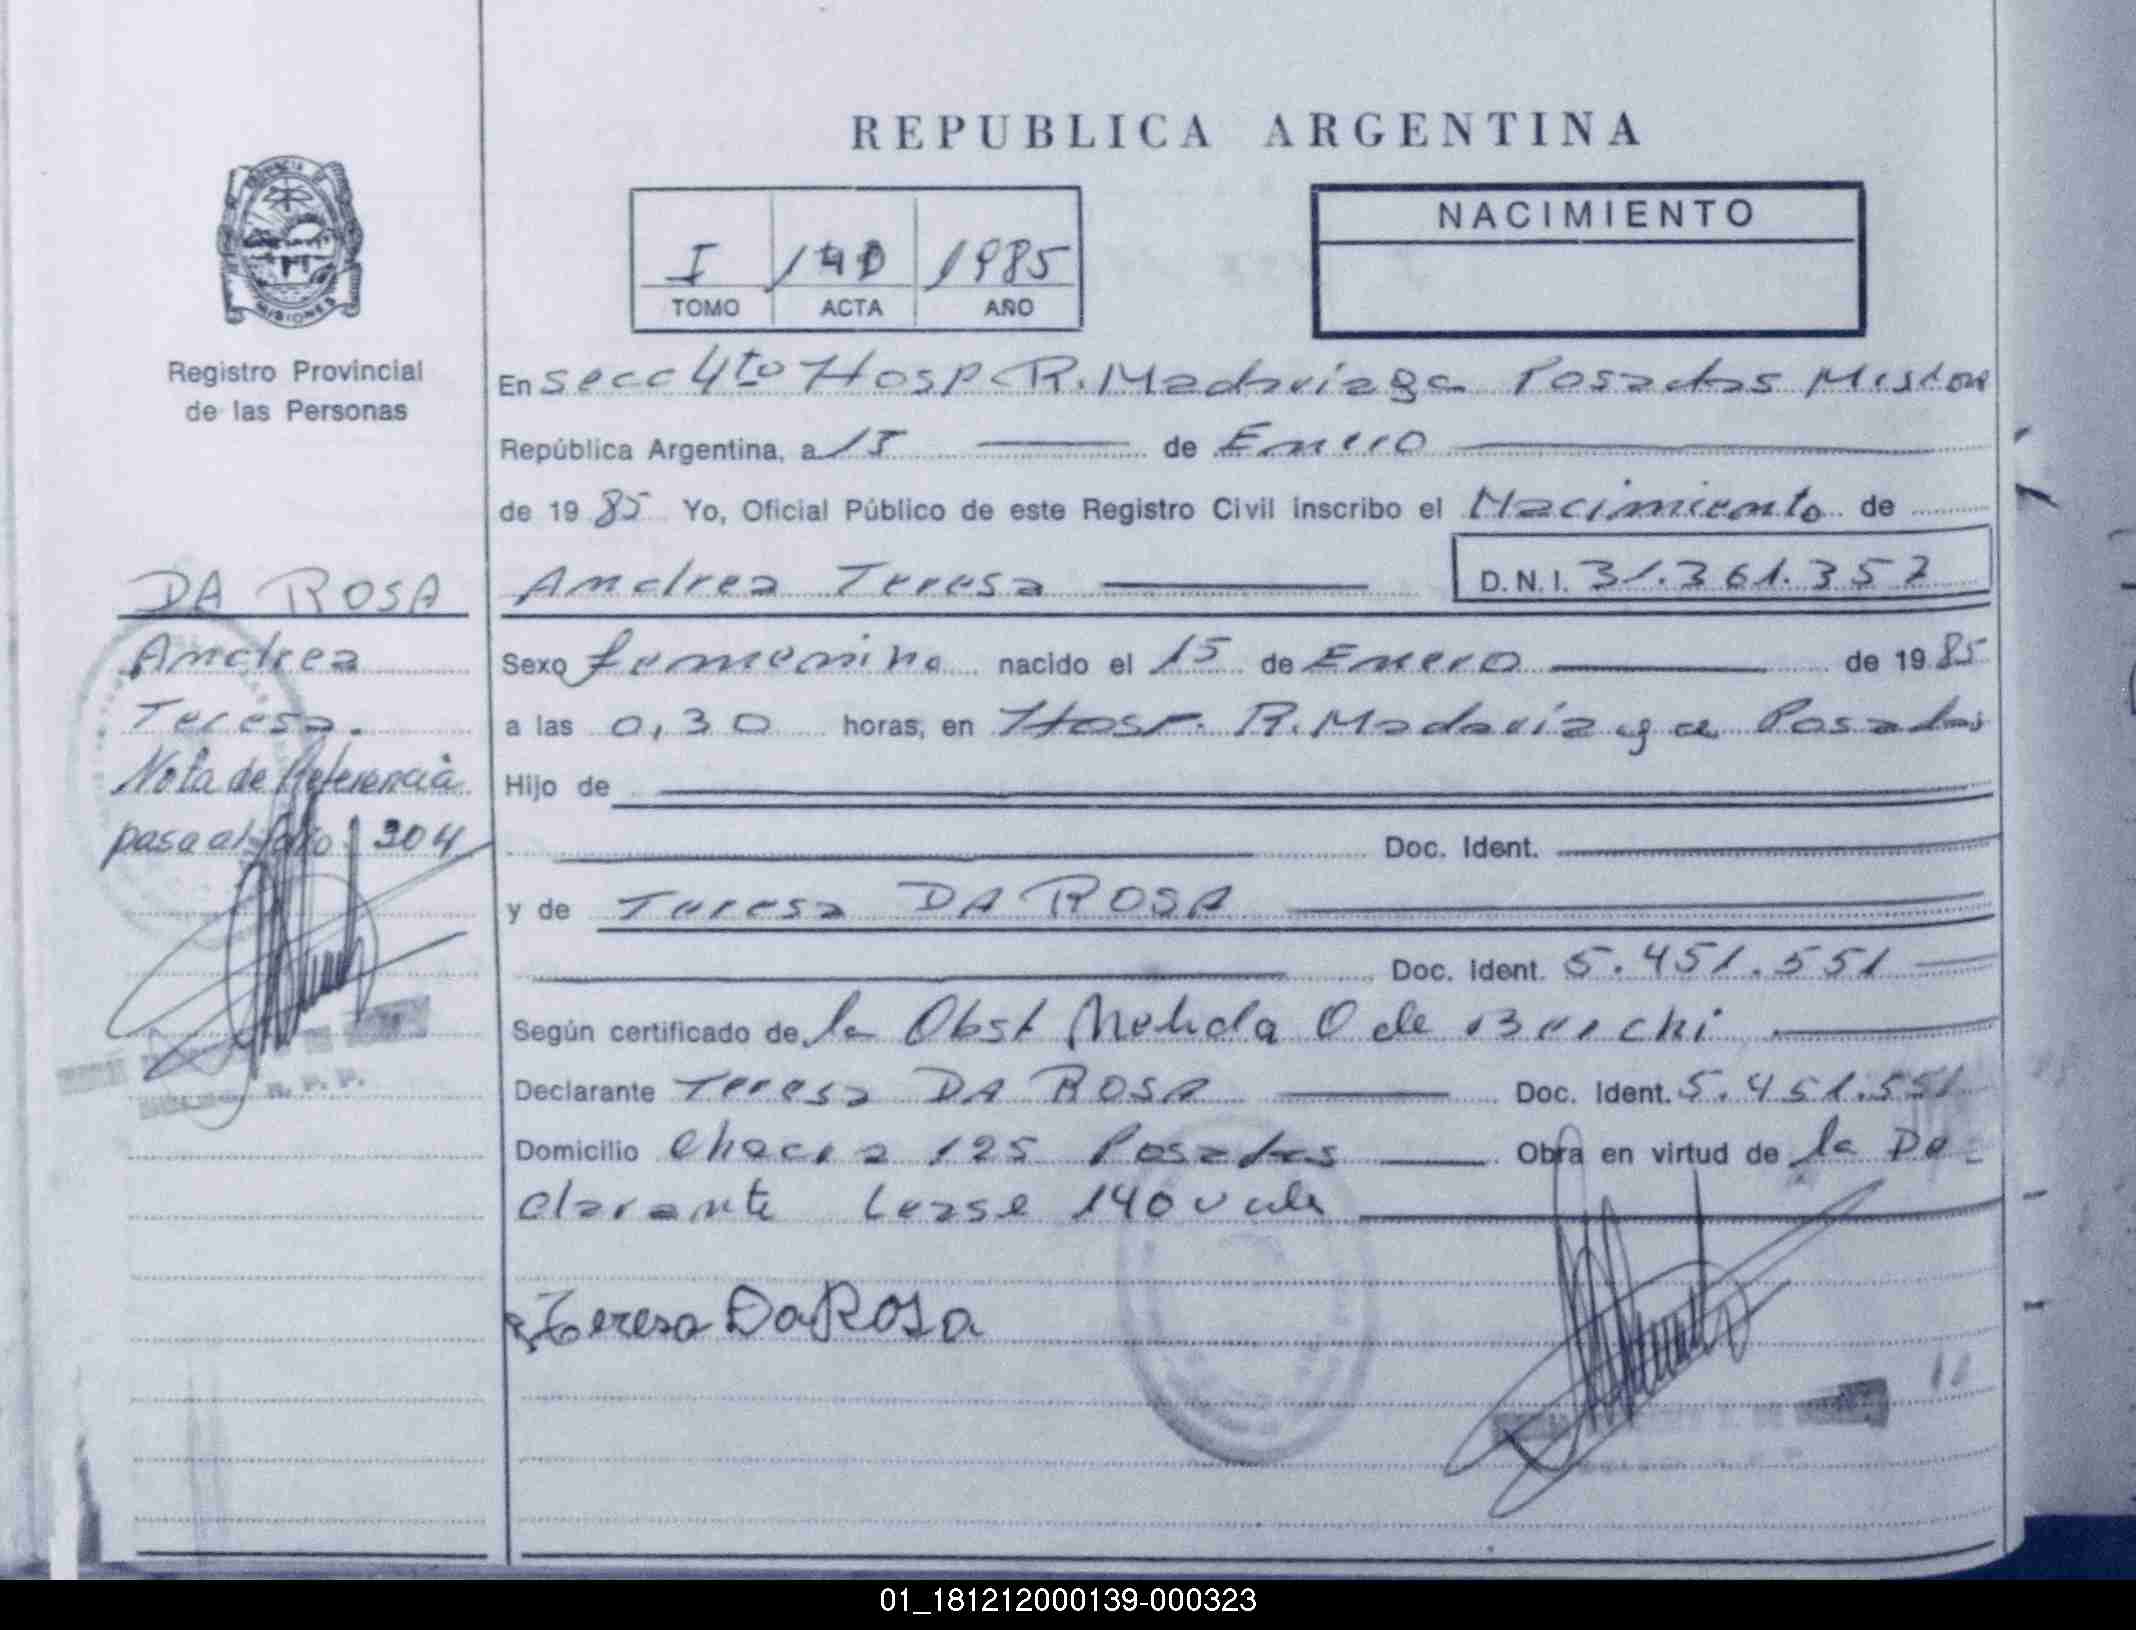 REPUBLICA ARGENTINA
I 1985
TOMO ACTA AÑO
NACIMIENTO
PROVINCIA DE MISIONES
Registro Provincial
de las Personas
DA ROSA
Andrea
Teresa.
Nota de Referencia
pasa al folio 304
En secc 4to Hosp R. Madariaga Posadas Mision
República Argentina, a 15 de Enero
de 1985 Yo, Oficial Público de este Registro Civil inscribo el Nacimiento de
Andrea Teresa D.N.I. 31.361.357
Sexo femenino nacido el 15 de Enero de 1985
a las 0,30 horas, en Hosp. R. Madariaga Posadas
Hijo de
Doc. Ident.
y de Teresa DA ROSA
Doc. Ident. 5.451.551
Según certificado de la Obst Nelida O de
Declarante Teresa DA ROSA Doc. Ident. 5.451.551
Domicilio Chacra 125 Posadas Obra en virtud de la De-
clarante Lease 140 vale
Teresa Da Rosa
01_181212000139-000323